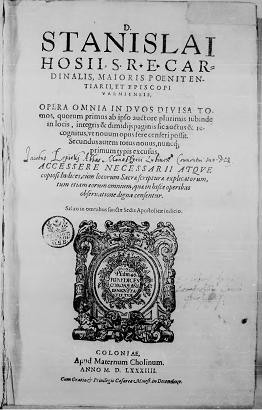 D.
STANISLAI
HOSII. S. R. E. CAR-
DINALIS, MAIORIS POENITEN-
TIARII, ET EPISCOPI
VARMIENSIS,
OPERA OMNIA IN DVOS DIVISA TO-
mos, quorum primus ab ipso auctore plurimis subinde
in locis, integris & dimidijs paginis sic auctus & re-
cognitus, vt nouum opus ferè censeri possit.
Secundus autem totus nouus, nuncq́;
primum typis excusus.
ACCESSERE NECESSARII ATQVE
copiosi Indices, cùm locorum Sacræ scripturæ explicatorum,
tum etiam eorum omnium, quæ in hisce operibus
obseruatione digna censentur.
Saluo in omnibus sanctæ Sedis Apostolicæ iudicio.
BENEDICES
COLONIAE,
Apud Maternum Cholinum.
ANNO M. D. LXXXIIII.
Cum Gratia & Priuilegio Cæsareæ Maiest. in Decennium.